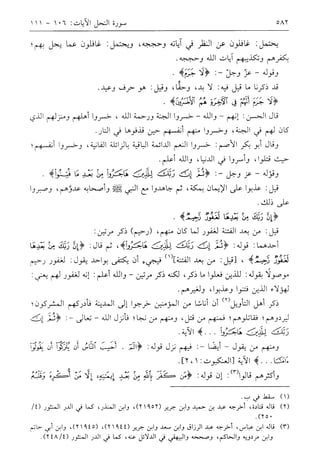 ٥٨٢ سورة النحل الآيات: ١٠٦ - ١١١
يحتمل: غافلون عن النظر في آياته وحججه، ويحتمل: غافلون عما يحل بهم؛
بكفرهم وتكذيبهم آيات الله وحججه.
وقوله - عز وجل -: ﴿لَا جَرَمَ﴾.
قد ذكرنا ما قيل فيه: لا بد، وحقًّا، وقيل: هو حرف وعيد.
﴿لَا جَرَمَ أَنَّهُمْ فِي الْآخِرَةِ هُمُ الْخَاسِرُونَ﴾.
قال الحسن: إنهم - والله - خسروا الجنة ورحمة الله، خسروا أهلهم ومنزلهم الذي
كان لهم في الجنة، وخسروا منهم أنفسهم حين قذفوها في النار.
وقال أبو بكر الأصم: خسروا النعم الدائمة الباقية بالزائلة الفانية، وخسروا أنفسهم؛
حيث قتلوا، وأسروا في الدنيا، والله أعلم.
وقوله - عز وجل -: ﴿ثُمَّ إِنَّ رَبَّكَ لِلَّذِينَ هَاجَرُوا مِنْ بَعْدِ مَا فُتِنُوا﴾.
قيل: عذبوا على الإيمان بمكة، ثم جاهدوا مع النبي ﷺ وأصحابه عدوَّهم، وصبروا
على ذلك.
﴿إِنَّ رَبَّكَ مِنْ بَعْدِهَا لَغَفُورٌ رَحِيمٌ﴾.
قيل: من بعد الفتنة لغفور لما كان منهم، (رحيم) ذكر مرتين:
أحدهما: قوله: ﴿ثُمَّ إِنَّ رَبَّكَ لِلَّذِينَ هَاجَرُوا﴾، ثم قال: ﴿إِنَّ رَبَّكَ مِنْ بَعْدِهَا
لَغَفُورٌ رَحِيمٌ﴾، [قيل: من بعد الفتنة](١) فيجيء أن يكتفى بواحد يقول: لغفور رحيم
موصولًا بقوله: للذين فعلوا ما ذكر، لكنه ذكر مرتين - والله أعلم: إنه لغفور لهم يعني:
لهؤلاء الذين فتنوا وعذبوا، ولغيرهم.
ذكر أهل التأويل(٢) أن أناسًا من المؤمنين خرجوا إلى المدينة فأدركهم المشركون؛
ليردوهم؛ فقاتلوهم؛ فمنهم من قتل، ومنهم من نجا؛ فأنزل الله - تعالى -: ﴿ثُمَّ إِنَّ
رَبَّكَ لِلَّذِينَ هَاجَرُوا . . .﴾ الآية.
ومنهم من يقول - أيضًا -: فيهم نزل قوله: ﴿الم . أَحَسِبَ النَّاسُ أَنْ يُتْرَكُوا أَنْ يَقُولُوا
آمَنَّا . . .﴾ الآية [العنكبوت: ١، ٢].
وأكثرهم قالوا(٣): إن قوله: ﴿مَنْ كَفَرَ بِاللَّهِ مِنْ بَعْدِ إِيمَانِهِ إِلَّا مَنْ أُكْرِهَ وَقَلْبُهُ
(١) سقط في ب.
(٢) قاله قتادة، أخرجه عبد بن حميد وابن جرير (٢١٩٥٢)، وابن المنذر، كما في الدر المنثور (٤/
٢٥٠).
(٣) قاله ابن عباس، أخرجه عبد الرزاق وابن سعد وابن جرير (٢١٩٤٤)، (٢١٩٤٥)، وابن أبي حاتم
وابن مردويه والحاكم، وصححه والبيهقي في الدلائل عنه، كما في الدر المنثور (٤/٢٤٨).